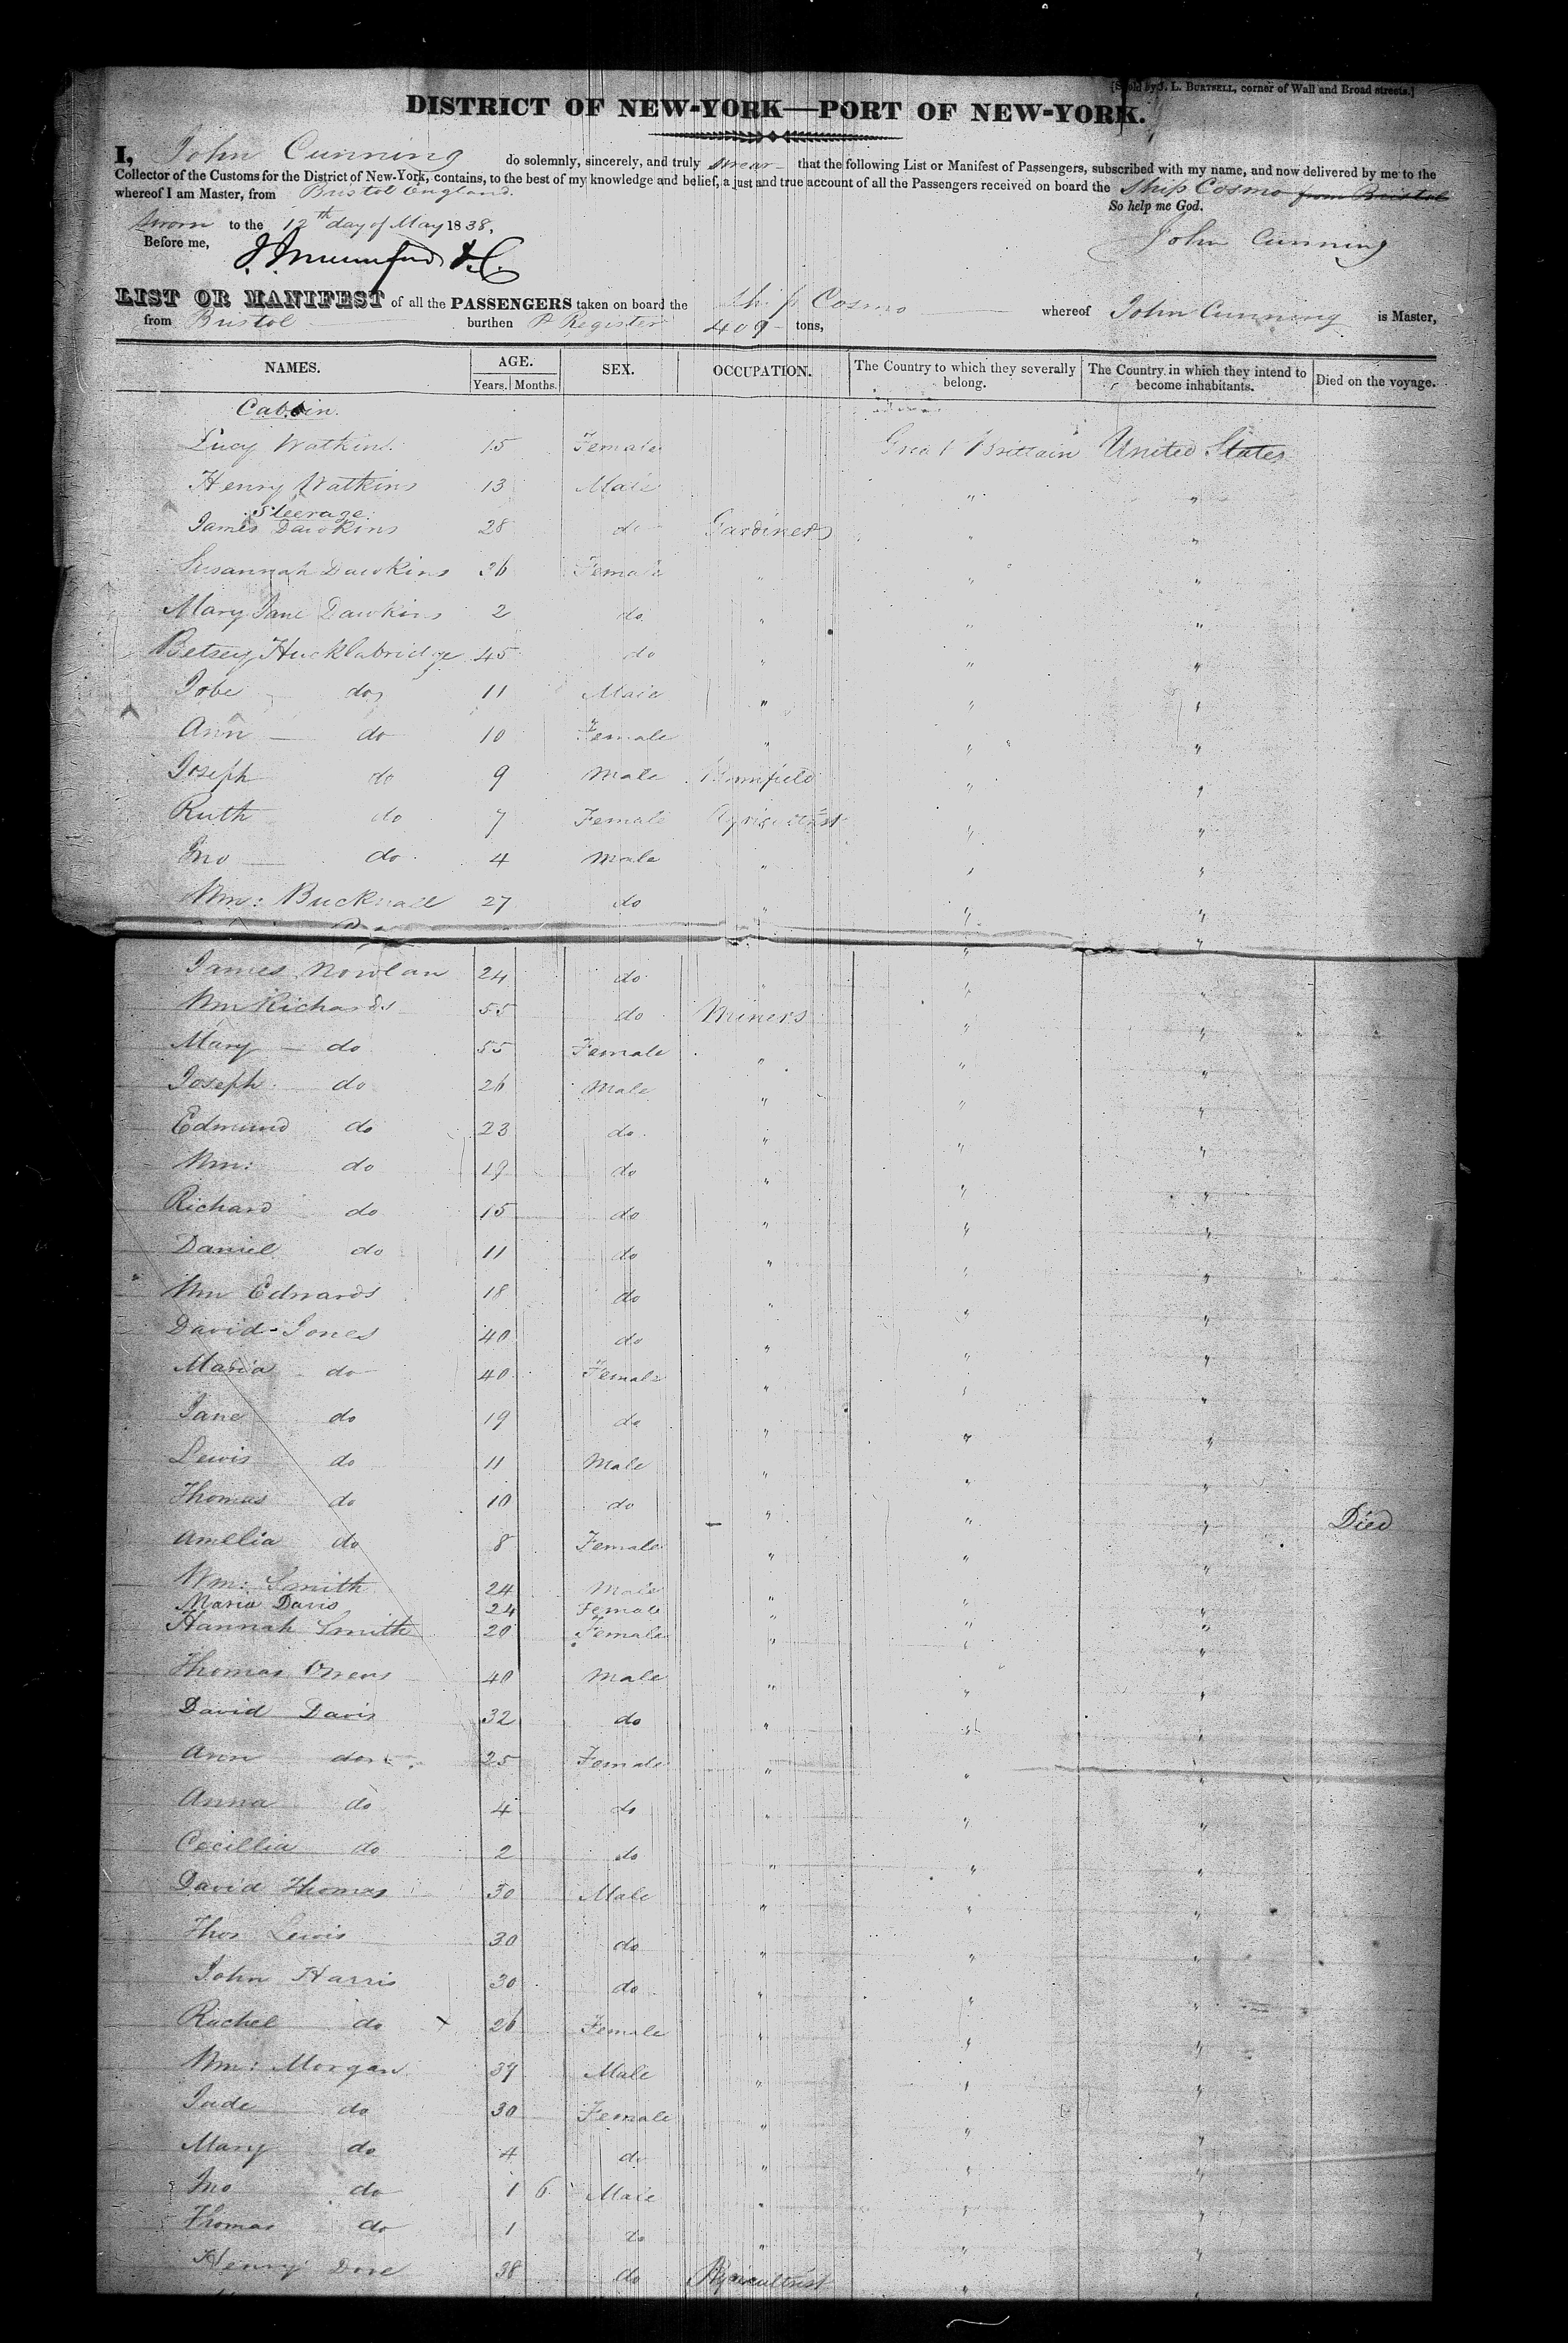 [Sold by J. L. BURTSELL, corner of Wall and Broad streets.]
DISTRICT OF NEW-YORK—PORT OF NEW-YORK.
I, John Cunning do solemnly, sincerely, and truly swear that the following List or Manifest of Passengers, subscribed with my name, and now delivered by me to the
Collector of the Customs for the District of New-York, contains, to the best of my knowledge and belief, a just and true account of all the Passengers received on board the Ship Cosmo from Bristol
whereof I am Master, from Bristol England.
So help me God.
Sworn to the 12th day of May 1838,
John Cunning
Before me,
LIST OR MANIFEST of all the PASSENGERS taken on board the Ship Cosmo whereof John Cunning is Master,
from Bristol burthen Register 409 tons,
NAMES. AGE. SEX. OCCUPATION. The Country to which they severally belong. The Country in which they intend to become inhabitants. Died on the voyage.
Years. Months.
Cabbin.
Lucy Watkins 15 Female Great Brittain United States
Henry Watkins 13 Male " "
Steerage
James Dawkins 28 do Gardiner " "
Susannah Dawkins 26 Female " " "
Mary Jane Dawkins 2 do " " "
Betsey Hucklabridge 45 do " " "
Jobe do 11 Male " " "
Ann do 10 Female " " "
Joseph do 9 Male " "
Ruth do 7 Female Agricultrist " "
Jno do 4 Male " " "
Wm: Bucknall 27 do " " "
James Nowlan 24 do " " "
Wm Richards 55 do Miners " "
Mary do 55 Female " " "
Joseph do 26 Male " " "
Edmund do 23 do " " "
Wm: do 19 do " " "
Richard do 15 do " " "
Daniel do 11 do " " "
Wm Edwards 18 do " " "
David Jones 40 do " " "
Maria do 40 Female " " "
Jane do 19 do " " "
Lewis do 11 Male " " "
Thomas do 10 do " " " Died
Amelia do 8 Female " " "
Wm: Smith 24 Male " " "
Maria Davis 24 Female " " "
Hannah Smith 20 Female " " "
Thomas Owens 40 Male " " "
David Davis 32 do " " "
Ann do 25 Female " " "
Anna do 4 do " " "
Cecillia do 2 do " " "
David Thomas 30 Male " " "
Thos Lewis 30 do " " "
John Harris 30 do " " "
Rachel do 26 Female " " "
Wm: Morgan 37 Male " " "
Jude do 30 Female " " "
Mary do 4 do " " "
Jno do 1 6 Male " " "
Thomas do 1 do " " "
Henry Dove 38 do Agricultrist " "